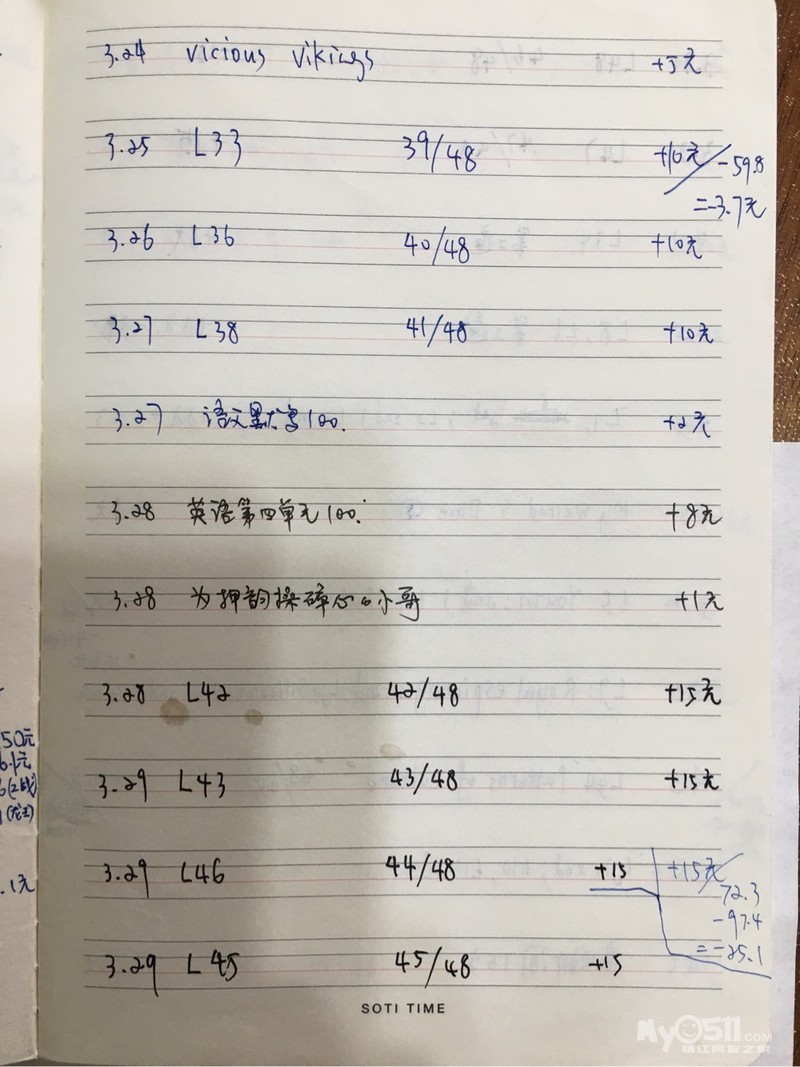 3.24 vicious vikings +5元
3.25 L33 39/48 +10元 -59.8
=-3.7元
3.26 L36 40/48 +10元
3.27 L38 41/48 +10元
3.27 语文默写100. +2元
3.28 英语第四单元100. +8元
3.28 为押韵操碎心的小哥 +1元
3.28 L42 42/48 +15元
3.29 L43 43/48 +15元
3.29 L46 44/48 +15 +15元
72.3
-97.4
=-25.1
3.29 L45 45/48 +15
SOTI TIME
50元
6.1元
.1元
My0511.COM